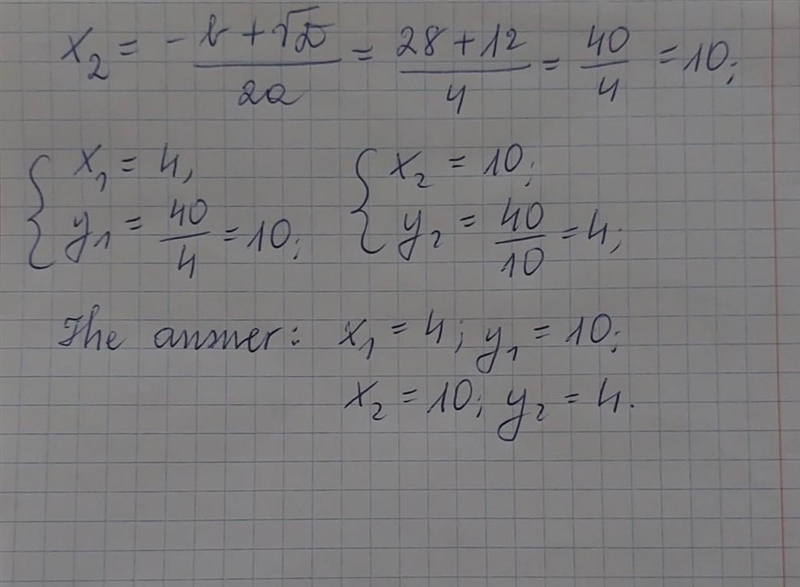 x₂ = -b+√D/2a = 28+12/4 = 40/4 = 10;
{ x₁ = 4, { x₂ = 10;
y₁ = 40/4 = 10; y₂ = 40/10 = 4;
The answer: x₁ = 4; y₁ = 10;
x₂ = 10; y₂ = 4.